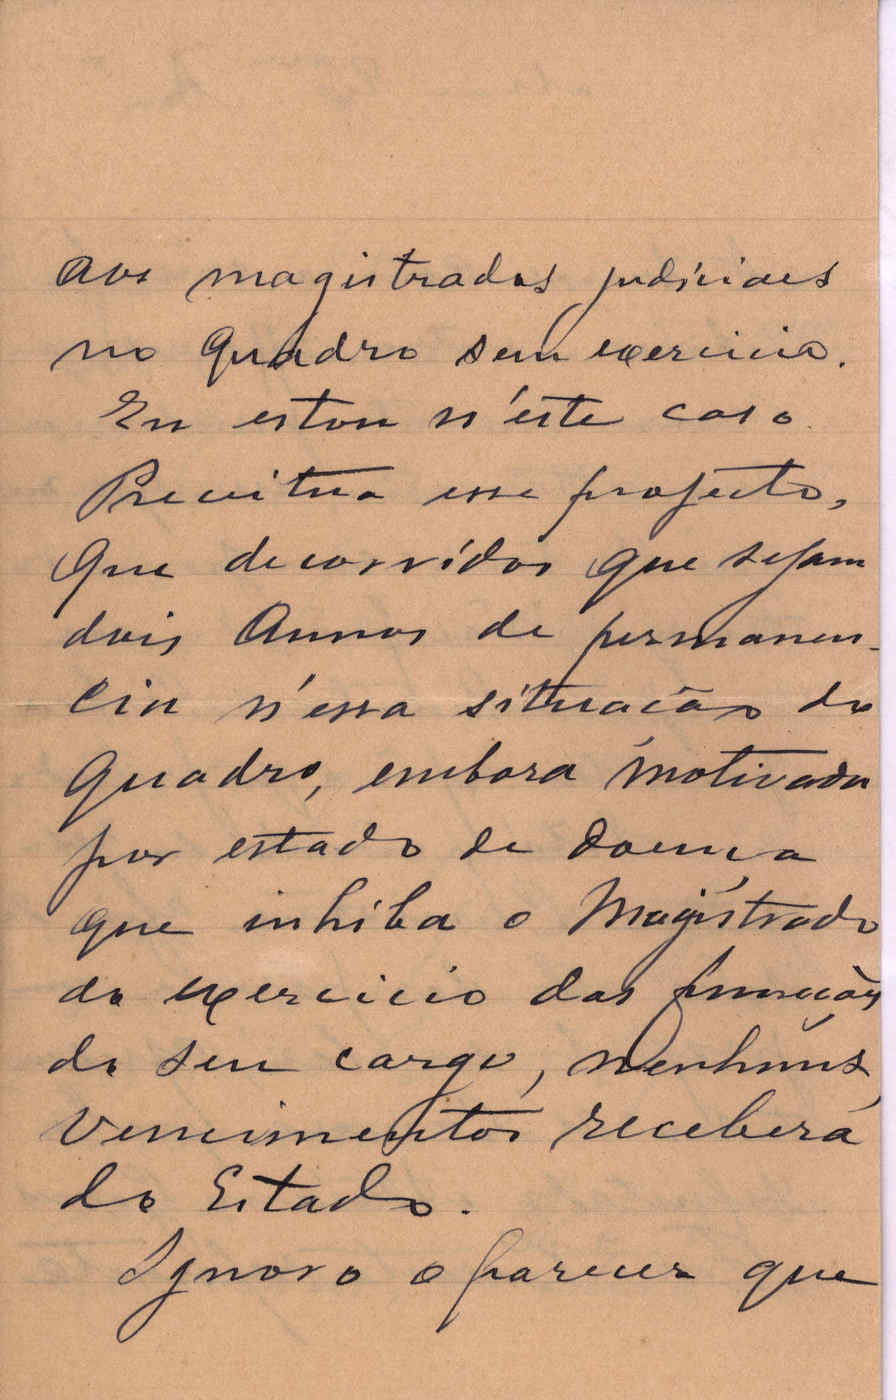 aos magistrados judiciaes
no Quadro sem exercicio.
Eu estou n'este caso.
Preceitua esse projecto,
Que decorridos que sejam
dois Annos de permanen-
cia n'essa situação do
Quadro, embora motivada
por estado de doença
que inhiba o Magistrado
do exercicio das funcções
do seu cargo, nenhũns
vencimentos receberá
do Estado.
Ignoro o parecer que